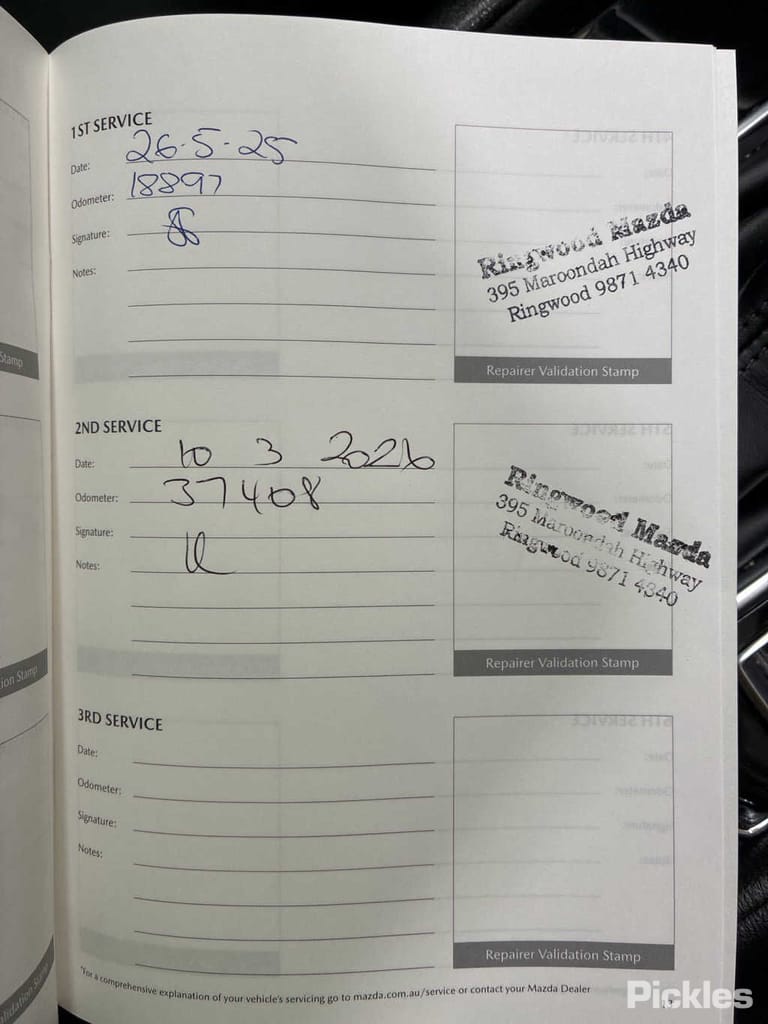 1ST SERVICE
Date: 26·5·25
Odometer: 18897
Signature:
Notes:
Ringwood Mazda
395 Maroondah Highway
Ringwood 9871 4340
Repairer Validation Stamp
Stamp
2ND SERVICE
Date: 10 3 2026
Odometer: 37408
Signature:
Notes:
Ringwood Mazda
395 Maroondah Highway
Ringwood 9871 4340
Repairer Validation Stamp
ion Stamp
3RD SERVICE
Date:
Odometer:
Signature:
Notes:
Repairer Validation Stamp
*For a comprehensive explanation of your vehicle's servicing go to mazda.com.au/service or contact your Mazda Dealer
Pickles